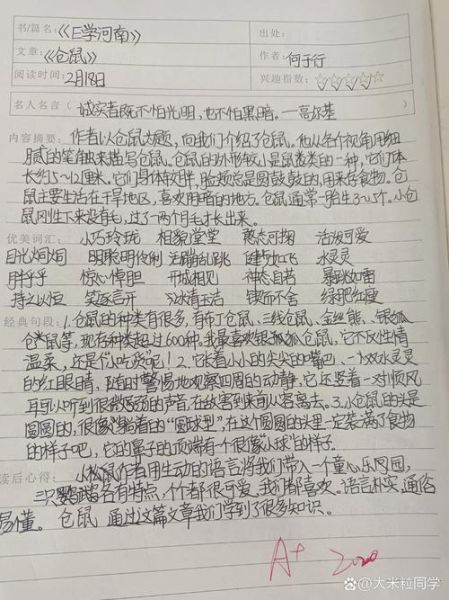 书/篇名：《E学河南》 出处：
文章：《仓鼠》 作者：何子行
阅读时间：2月18日 兴趣指数：☆☆☆☆☆
名人名言（ 诚实者既不怕光明，也不怕黑暗。——高尔基
内容摘要： 作者以仓鼠为题，向我们介绍了仓鼠。他从各个视角用细
腻的笔触来描写仓鼠。仓鼠的外形较小是鼠类的一种，它们体
长约5~12厘米。它们身体较胖，脸颊总是圆鼓鼓的，用来存食物。仓
鼠主要生活在干旱地区，喜欢阴暗的地方。仓鼠通常一胎生3~5个。小仓
鼠刚生下来没有毛，过了一两个月毛才长出来。
优美词汇： 小巧玲珑 相貌堂堂 憨态可掬 活泼可爱
目光炯炯 聪明伶俐 活蹦乱跳 健步如飞 水灵灵
胖乎乎 惊心悼胆 开诚相见 神态自若 暴跳如雷
持之以恒 笑逐言开 冰清玉洁 锲而不舍 绿肥红瘦
经典句段：1.仓鼠的种类有很多，有布丁仓鼠、三线仓鼠、金丝熊、银狐
仓鼠等，现存种类超过600种，我最喜欢银狐仓鼠，它不反性情
温柔，还是个小吃货呢！2.它长着小小的尖尖的嘴巴、一双水灵灵
的红眼睛，随时警惕地观察四周的动静。它还竖着一对顺风
耳可以听到很微弱的声音，在伤害到来前从容离去。3.小仓鼠的头是
圆圆的，很像躺着的“圆球型”，在这个圆的头里一定装满了食物
的样子吧，它的鼻子的顶端有个很像“小球”的样子。
读后心得： 小松鼠作者用生动的语言将我们带入一个童心乐园，
三只各有特点，个个都很可爱，我们都喜欢。语言朴实，通俗
易懂。 仓鼠 通过这篇文章我们学到了很多知识。
A+
@大米粒同学